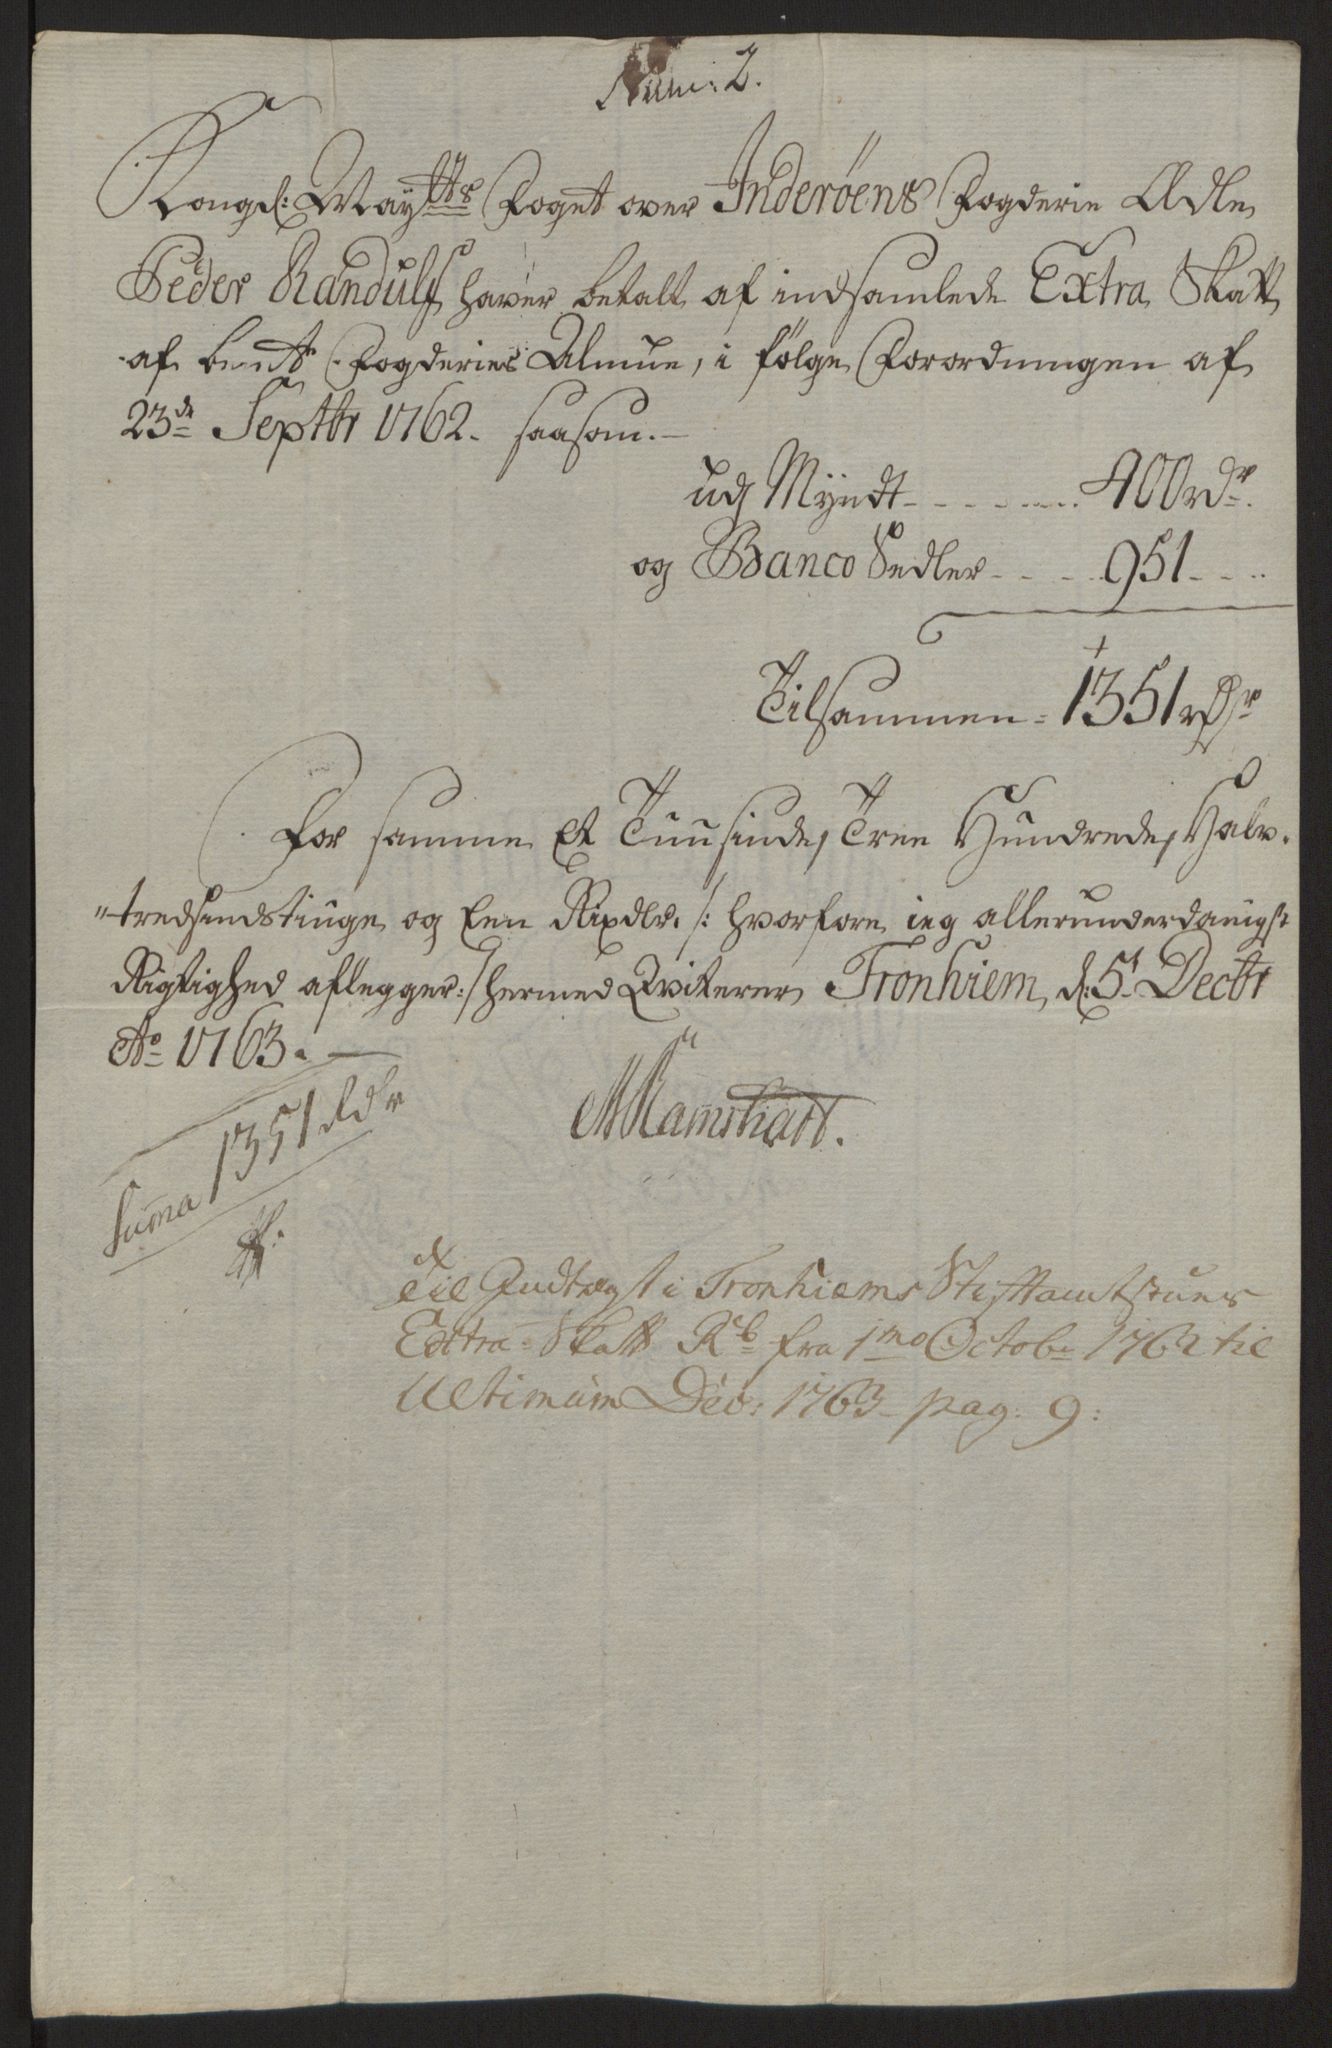 Num: 2.
Kongel: Maytts Foget over Inderöens Fogderie Ædle
Peder Randulf haver betalt af indsamlede Extra Skatt
af bemte Fogderies Almue, i følge Forordningen af
23de Septbr 1762. saasom.
udj Myndt - - - - - - 400 rdr.
og Banco Sedler - - - - 951 - - -
Tilsammen = 1351 rdr
For samme Et Tuusinde, Tree Hundrede, Halv-
"tredsindstiuge og Een Rixdlr. /: hvorfore ieg allerunderdanigst
Rigtighed aflegger :/ hermed Qviterer Tronhiem d: 5t Decbr
Ao 1763.
MRamshart.
Suma 1351 Rdr
Til Indtægt i Tronhiems Stiftamtstues
Extra = Skatt R.b fra 1mo Octobr 1762 til
Ultimum Dec: 1763 pag: 9: